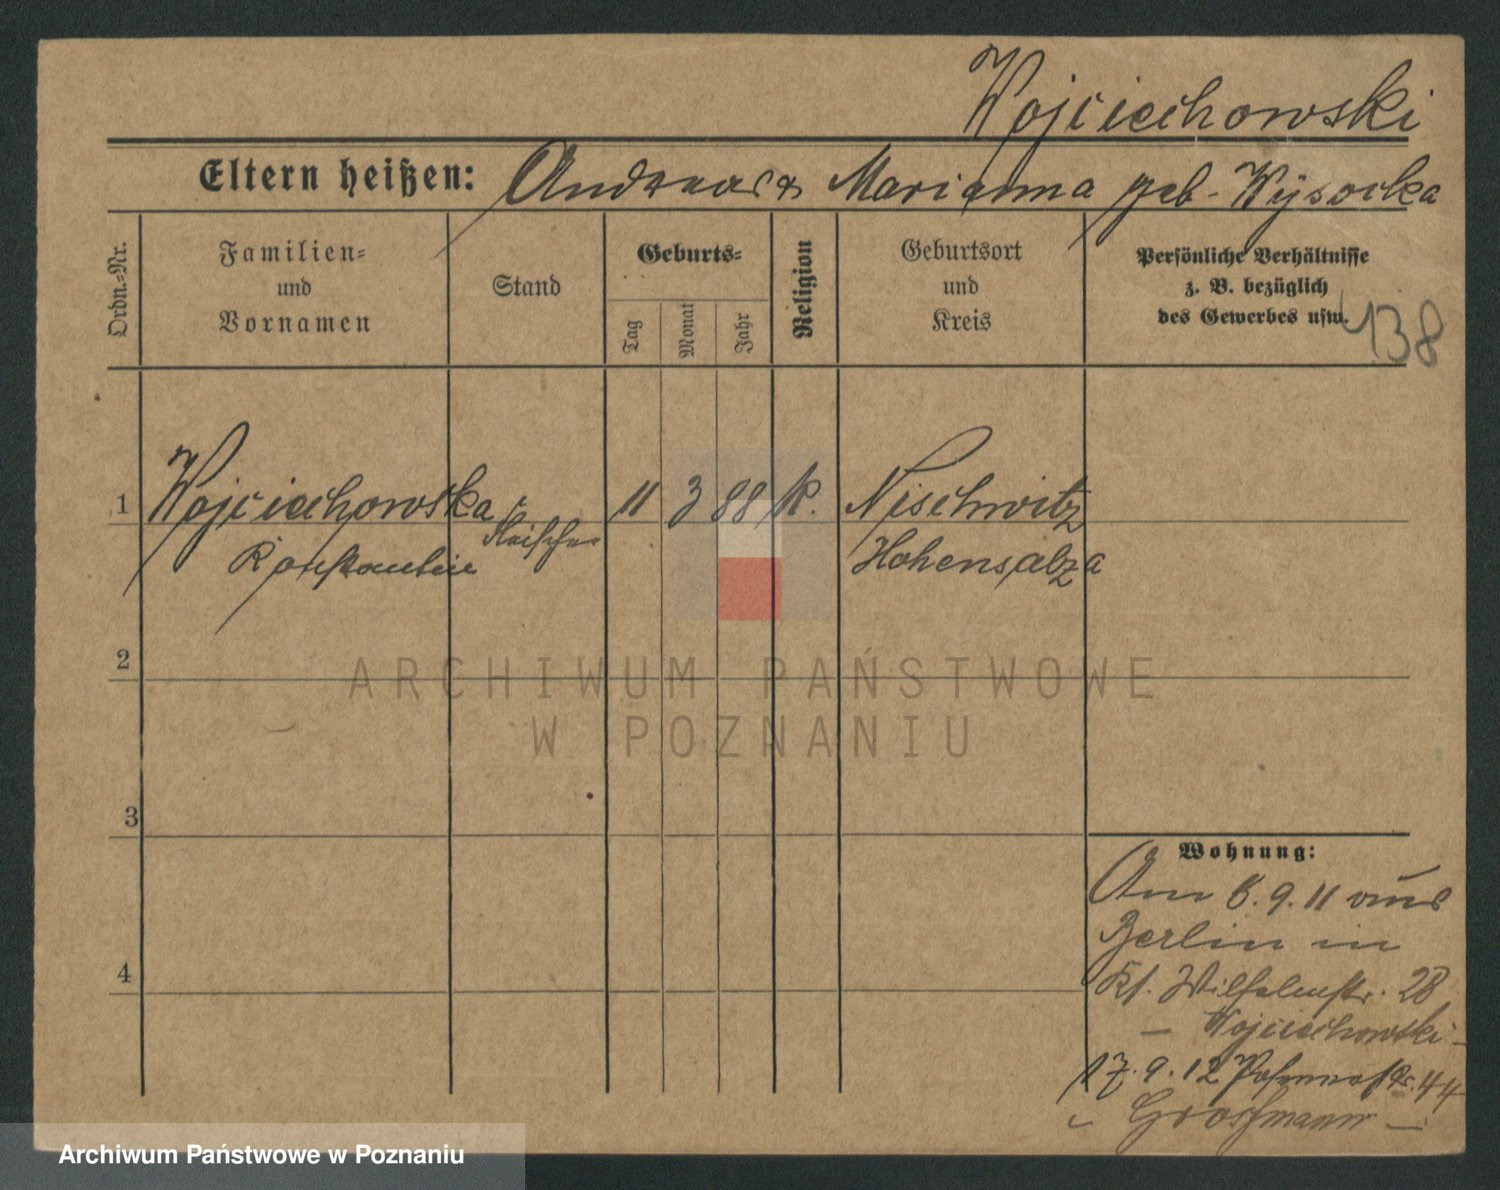 Wojciechowski
Eltern heißen: Andreas & Marianna geb. Wysocka
Ordn.-Nr.
Familien-
und
Vornamen
Stand
Geburts-
Tag
Monat
Jahr
Religion
Geburtsort
und
Kreis
Persönliche Verhältnisse
z. B. bezüglich
des Gewerbes usw.
138
1 Wojciechowska 11 3 88 k. Nischwitz
Konstantin Fleischer Hohensalza
2
3
4
ARCHIWUM PAŃSTWOWE
W POZNANIU
Wohnung:
Am 6.9.11 aus
Berlin in
Kl. Wilhelmstr. 28
— Wojciechowski —
17.9.12 Posenerstr. 44
Grossmann —
Archiwum Państwowe w Poznaniu